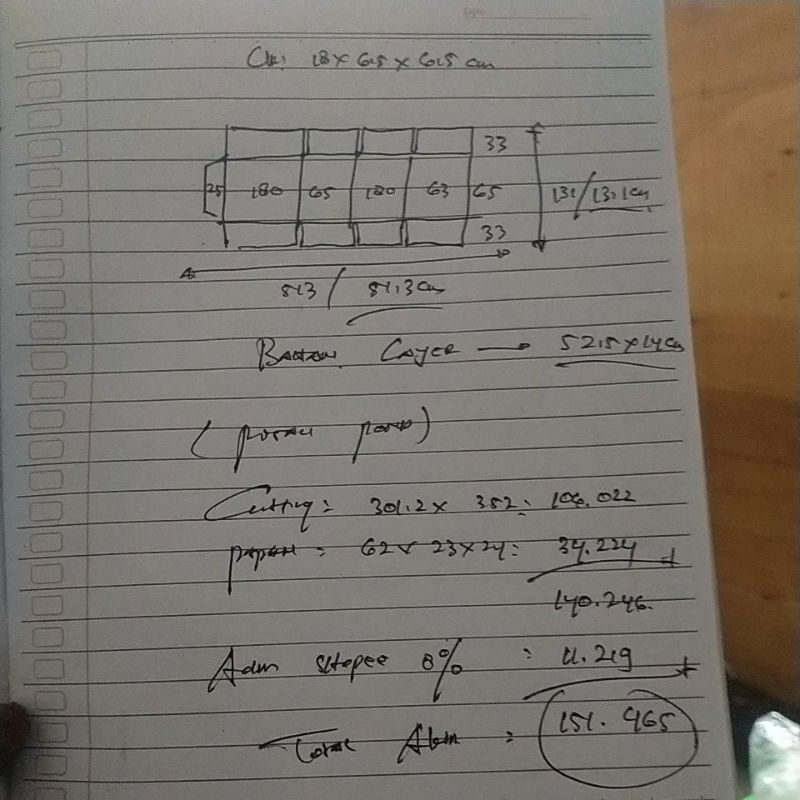 Uk: 18 x 6,5 x 6,5 cm
33
25 180 65 180 63 65 131/13,1 cm
33
513 / 51,3 cm
Layer → 52,5 x 14 cm
(
Cutting = 301.2 x 352 = 106.022
papan = 62 x 23 x 24 = 34.224 +
140.246.
Adm Shopee 8% = 11.219 +
Total = 151.465